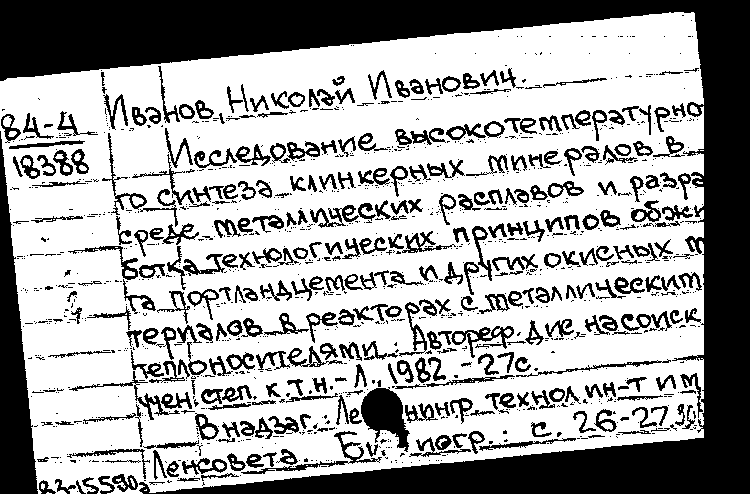 84-4
18388
Иванов, Николай Иванович.
Исследование высокотемпературно
го синтеза клинкерных минералов в
среде металлических расплавов и разра
ботка технологических принципов обжи
га портландцемента и других окисных м
териалов в реакторах с металлическим
теплоносителями: Автореф. дис. на соиск
учен. степ. к.т.н. - Л., 1982. - 27с.
В надзаг.: Ле нингр. технол. ин-т им
Ленсовета. Би иогр.: с. 26-27
83-15590